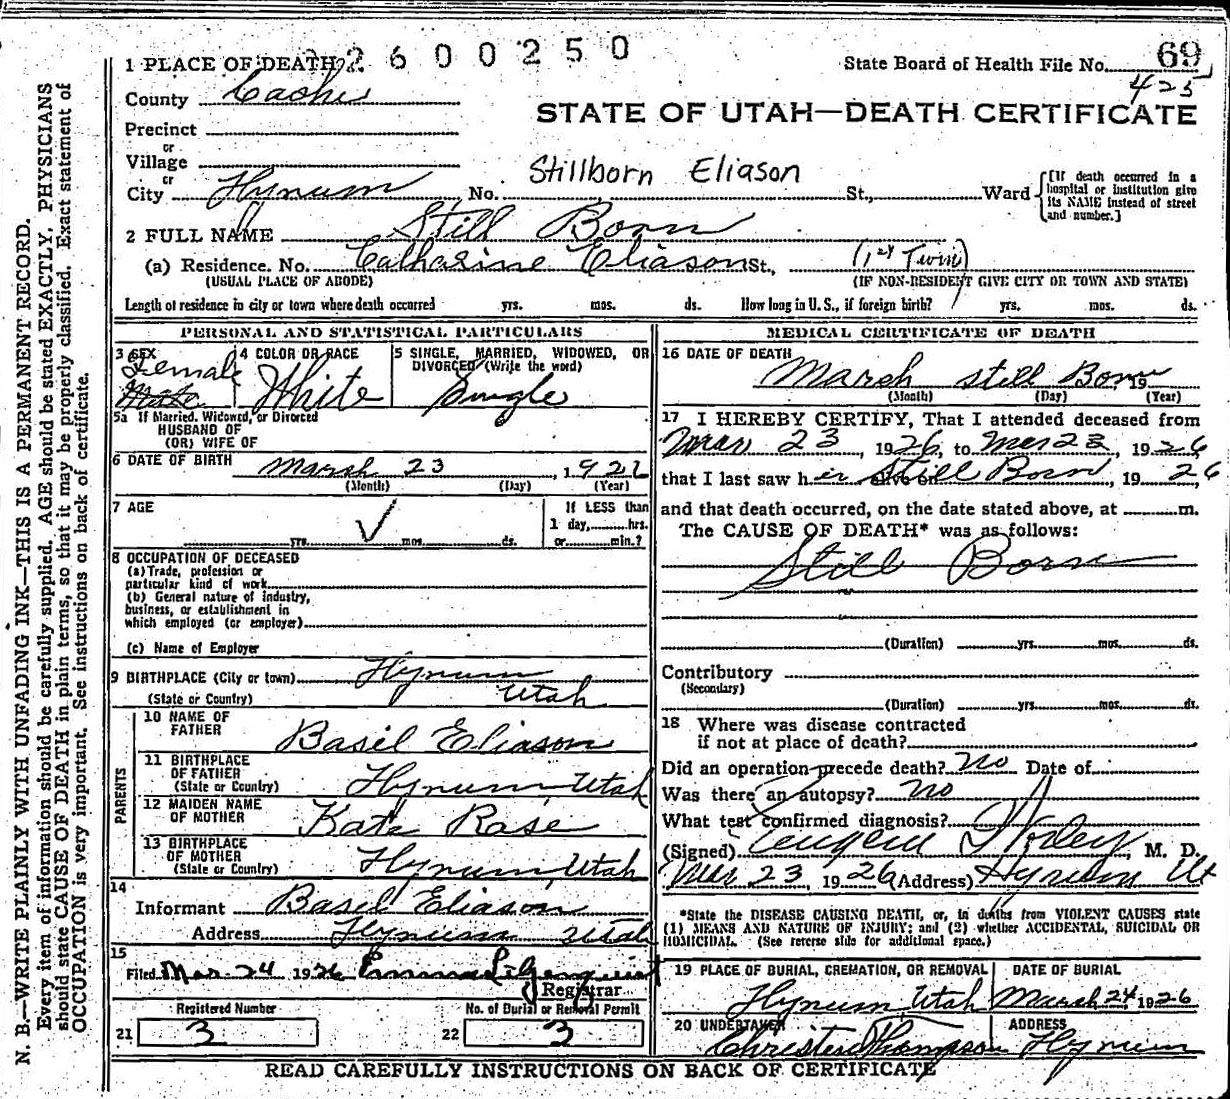 2600250
1 PLACE OF DEATH
State Board of Health File No. 69
425
County Cache
STATE OF UTAH—DEATH CERTIFICATE
Precinct
or
Village
or
Stillborn Eliason
City Hyrum No. St., Ward
[If death occurred in a
hospital or institution give
its NAME instead of street
and number.]
2 FULL NAME Still Born
(a) Residence. No. Catharine Eliason St., (1st Twin)
(USUAL PLACE OF ABODE) (IF NON-RESIDENT GIVE CITY OR TOWN AND STATE)
Length of residence in city or town where death occurred yrs. mos. ds. How long in U. S., if foreign birth? yrs. mos. ds.
PERSONAL AND STATISTICAL PARTICULARS
3 SEX
Female
Male
4 COLOR OR RACE
White
5 SINGLE, MARRIED, WIDOWED, OR
DIVORCED (Write the word)
Single
5a If Married, Widowed, or Divorced
HUSBAND OF
(OR) WIFE OF
6 DATE OF BIRTH Marsh 23, 192
(Month) (Day) (Year)
7 AGE
If LESS than
1 day, hrs.
yrs. mos. ds. or min.?
8 OCCUPATION OF DECEASED
(a) Trade, profession or
particular kind of work
(b) General nature of industry,
business, or establishment in
which employed (or employer)
(c) Name of Employer
9 BIRTHPLACE (City or town) Hyrum
(State or Country) Utah
PARENTS
10 NAME OF
FATHER Basil Eliason
11 BIRTHPLACE
OF FATHER
(State or Country) Hyrum Utah
12 MAIDEN NAME
OF MOTHER Kate Rase
13 BIRTHPLACE
OF MOTHER
(State or Country) Hyrum, Utah
14
Informant Basil Eliason
Address Hyrum Utah
15
Filed Mar 24 1926 Emma
Registrar
Registered Number No. of Burial or Removal Permit
21 3 22 3
MEDICAL CERTIFICATE OF DEATH
16 DATE OF DEATH
Marsh still Born 19
(Month) (Day) (Year)
17 I HEREBY CERTIFY, That I attended deceased from
Mar 23, 1926, to Mar 23, 1926
that I last saw her alive on Still Born, 1926
and that death occurred, on the date stated above, at m.
The CAUSE OF DEATH* was as follows:
Still Born
(Duration) yrs. mos. ds.
Contributory
(Secondary)
(Duration) yrs. mos. ds.
18 Where was disease contracted
if not at place of death?
Did an operation precede death? No Date of
Was there an autopsy? No
What test confirmed diagnosis?
(Signed) Eugene Worley, M. D.
Mar 23, 1926 (Address) Hyrum Ut
*State the DISEASE CAUSING DEATH, or, in deaths from VIOLENT CAUSES state
(1) MEANS AND NATURE OF INJURY; and (2) whether ACCIDENTAL, SUICIDAL OR
HOMICIDAL. (See reverse side for additional space.)
19 PLACE OF BURIAL, CREMATION, OR REMOVAL DATE OF BURIAL
Hyrum Utah March 24 1926
20 UNDERTAKER ADDRESS
Thompson Hyrum
READ CAREFULLY INSTRUCTIONS ON BACK OF CERTIFICATE
N. B.—WRITE PLAINLY WITH UNFADING INK—THIS IS A PERMANENT RECORD.
Every item of information should be carefully supplied. AGE should be stated EXACTLY. PHYSICIANS
should state CAUSE OF DEATH in plain terms, so that it may be properly classified. Exact statement of
OCCUPATION is very important. See instructions on back of certificate.